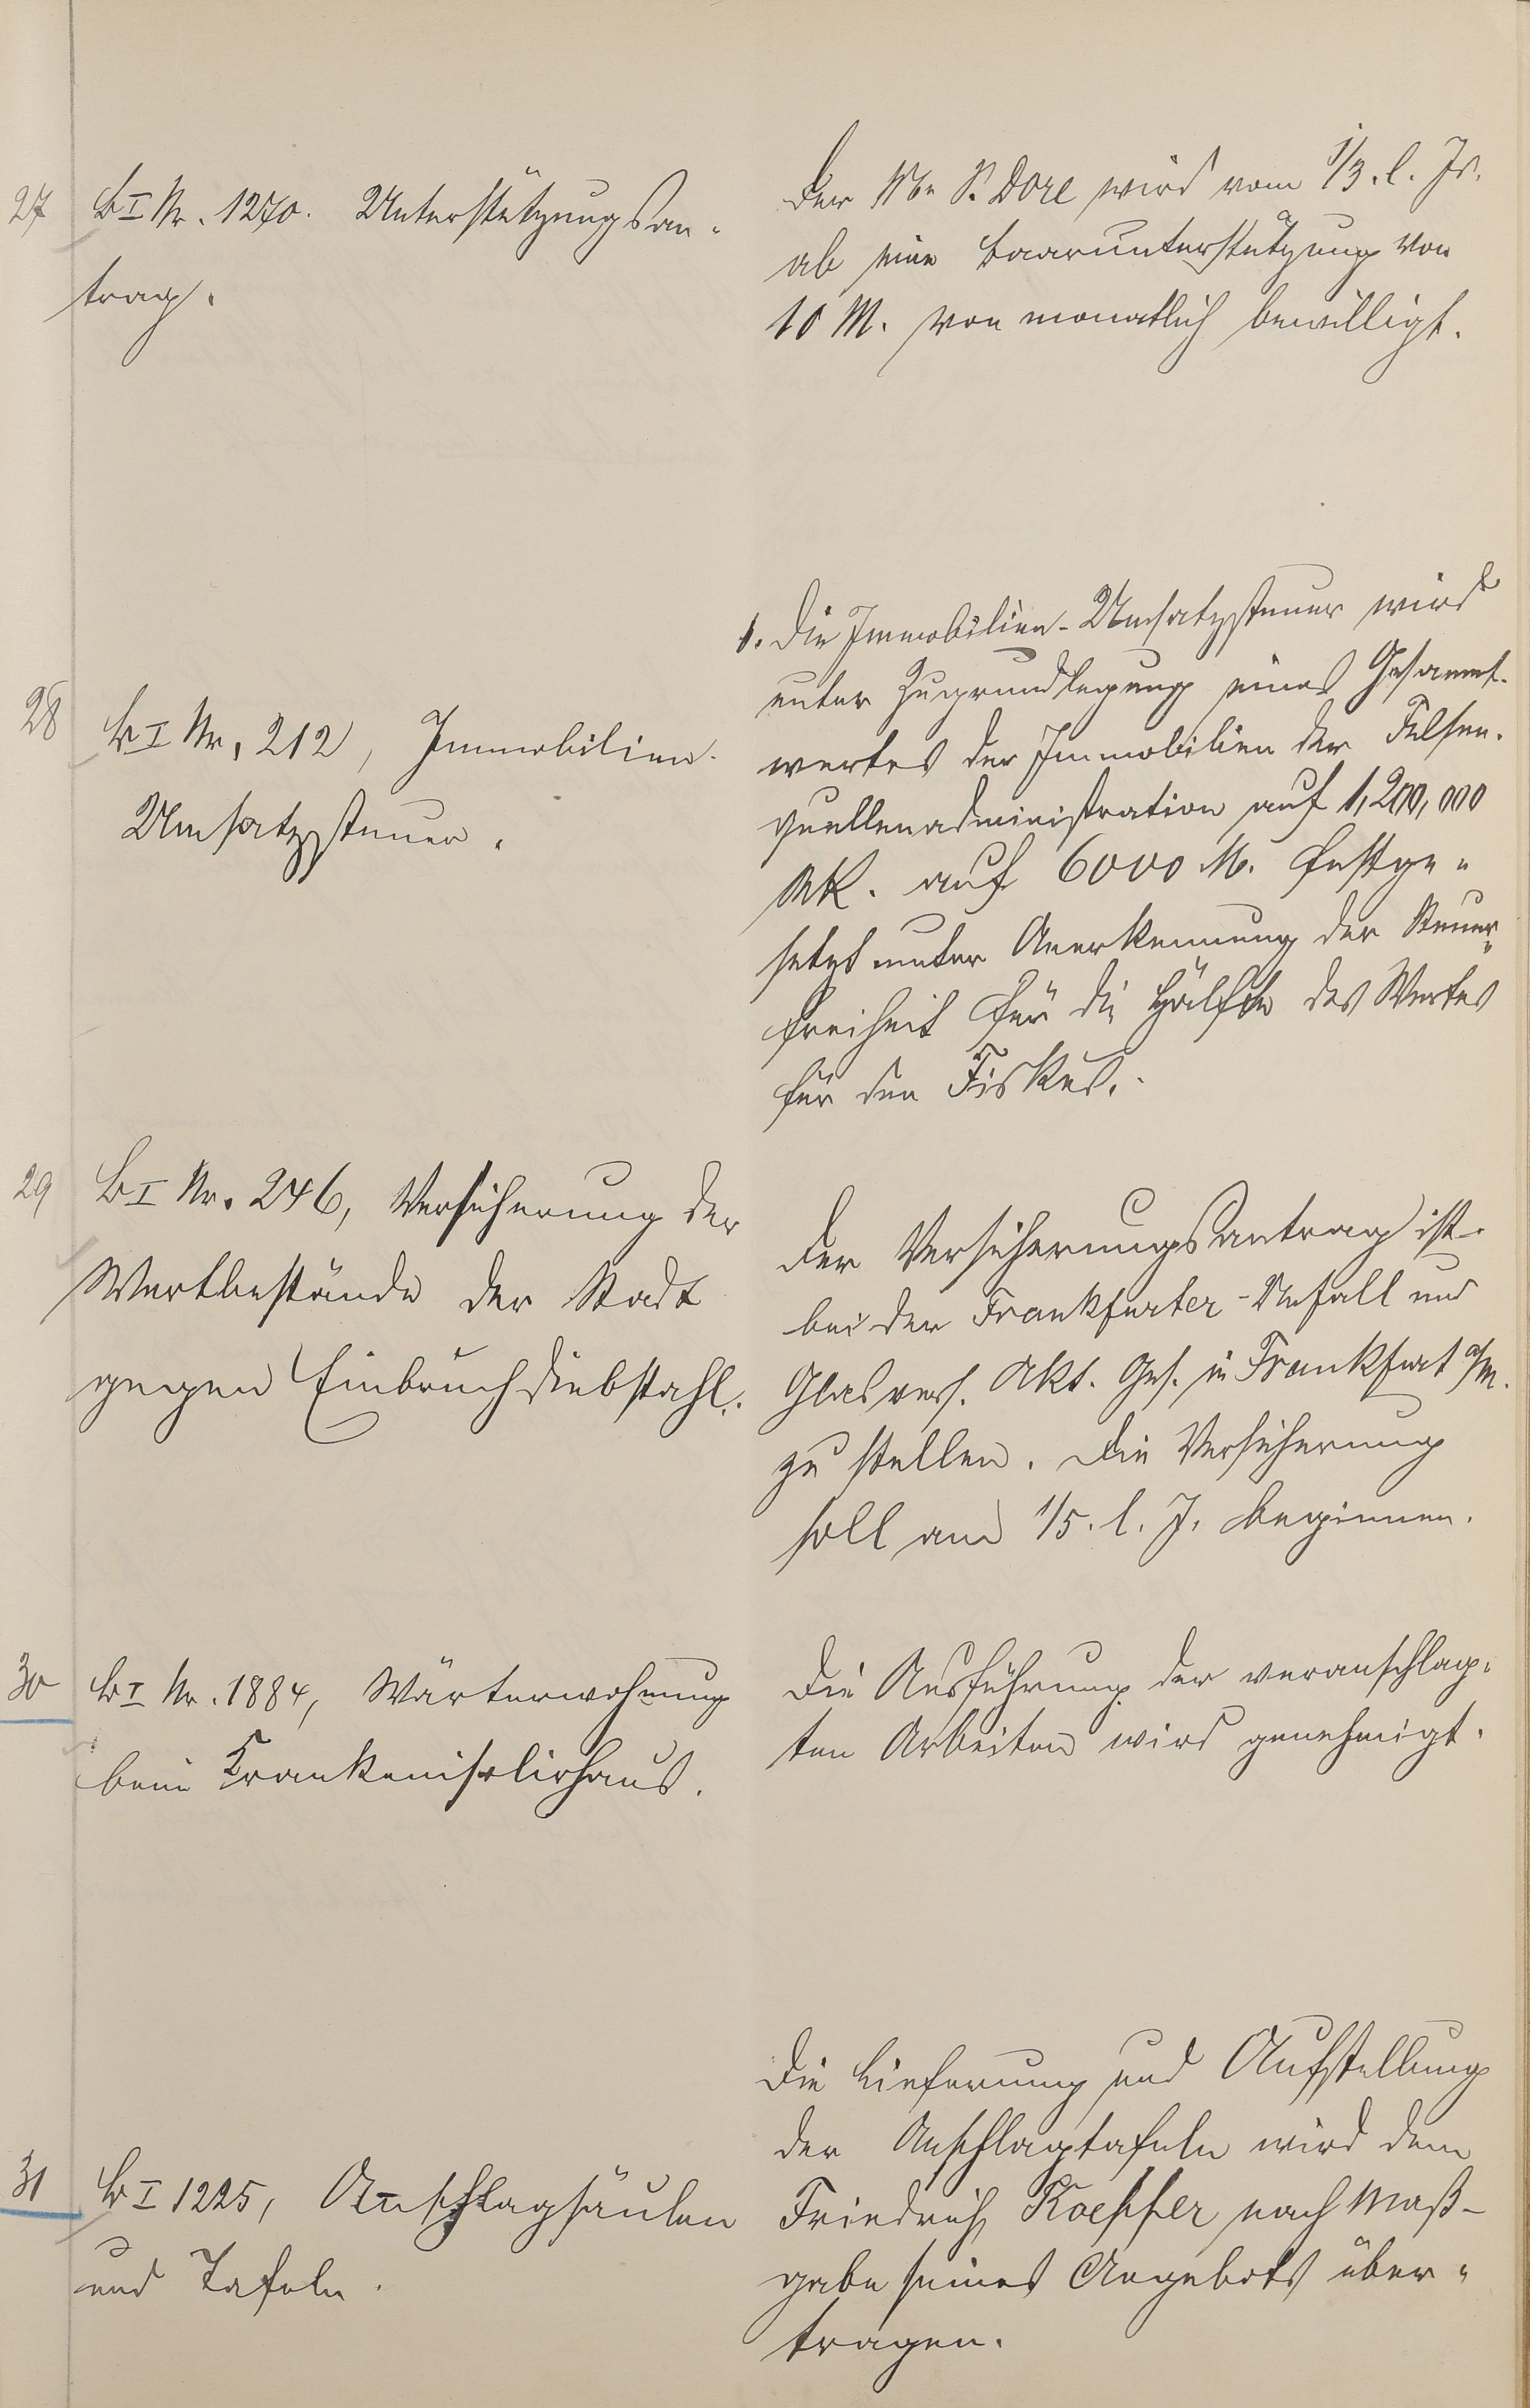 27
B I Nr. 1270. Unterstützungsan-
trag.
Der Wwe S. Dore wird vom 1/3. l. Js.
ab eine Baarunterstützung von
10 M. von monatlich bewilligt.
28
B I Nr. 212, Immobilien-
Umsatzsteuer.
1. Die Immobilien-Umsatzsteuer wird
unter Zugrundlegung eines Gesammt-
wertes der Immobilien der Felsen-
quellenadministration auf 1,200,000
Mk. auf 6000 M. festge-
setzt unter Anerkennung der Steuer-
freiheit für die Hälfte des Wertes
für den Fiskus.
29
B I Nr. 246, Versicherung der
Wertbestände der Stadt
gegen Einbruchdiebstahl.
Der Versicherungsantrag ist
bei der Frankfurter-Unfall und
Glasvers. Akt. Ges. in Frankfurt a/M.
zu stellen. Die Versicherung
soll am 1/5. l. J. beginnen.
30
B I Nr. 1884, Wärterwohnung
beim Krankenisolirhaus.
Die Ausführung der veranschlag-
ten Arbeiten wird genehmigt.
31
B I 1225, Anschlagsäulen
und Tafeln.
Die Lieferung und Aufstellung
der Anschlagtafeln wird dem
Friedrich nach Maß-
gabe seines Angebots über-
tragen.